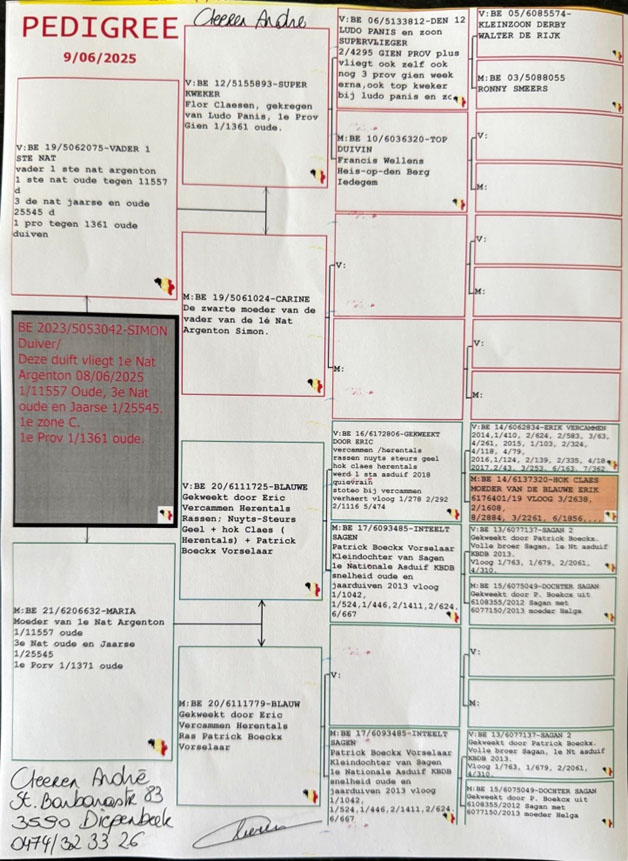 PEDIGREE
9/06/2025
Cleeren André
V:BE 19/5062075-VADER 1
STE NAT
vader 1 ste nat argenton
1 ste nat oude tegen 11557
d
3 de nat jaarse en oude
25545 d
1 pro tegen 1361 oude
duiven
BE 2023/5053042-SIMON
Duiver/
Deze duift vliegt 1e Nat
Argenton 08/06/2025
1/11557 Oude, 3e Nat
oude en Jaarse 1/25545.
1e zone C.
1e Prov 1/1361 oude.
M:BE 21/6206632-MARIA
Moeder van 1e Nat Argenton
1/11557 oude
3e Nat oude en Jaarse
1/25545
1e Porv 1/1371 oude
V:BE 12/5155893-SUPER
KWEKER
Flor Claesen, gekregen
van Ludo Panis, 1e Prov
Gien 1/1361 oude.
M:BE 19/5061024-CARINE
De zwarte moeder van de
vader van de 1é Nat
Argenton Simon.
V:BE 20/6111725-BLAUWE
Gekweekt door Eric
Vercammen Herentals
Rassen; Nuyts-Steurs
Geel + hok Claes (
Herentals) + Patrick
Boeckx Vorselaar
M:BE 20/6111779-BLAUW
Gekweekt door Eric
Vercammen Herentals
Ras Patrick Boeckx
Vorselaar
V:BE 06/5133812-DEN 12
LUDO PANIS en zoon
SUPERVLIEGER
2/4295 GIEN PROV plus
vliegt ook zelf ook
nog 3 prov gien week
erna,ook top kweker
bij ludo panis en zo
M:BE 10/6036320-TOP
DUIVIN
Francis Wellens
Heis-op-den Berg
Iedegem
V:
M:
V:BE 16/6172806-GEKWEEKT
DOOR ERIC
vercammen /herentals
rassen nuyts steurs geel
hok claes herentals
werd 1 sta asduif 2018
quievrain
stoteo bij vercammen
verhaert vloog 1/278 2/292
2/1116 5/474
M:BE 17/6093485-INTEELT
SAGEN
Patrick Boeckx Vorselaar
Kleindochter van Sagen
1e Nationale Asduif KBDB
snelheid oude en
jaarduiven 2013 vloog
1/1042,
1/524,1/446,2/1411,2/624,
6/667
V:
M:BE 17/6093485-INTEELT
SAGEN
Patrick Boeckx Vorselaar
Kleindochter van Sagen
1e Nationale Asduif KBDB
snelheid oude en
jaarduiven 2013 vloog
1/1042,
1/524,1/446,2/1411,2/624,
6/667
V:BE 05/6085574-
KLEINZOON DERBY
WALTER DE RIJK
M:BE 03/5088055
RONNY SMEERS
V:
M:
V:
M:
V:
M:
V:BE 14/6062834-ERIK VERCAMMEN
2014,1/410, 2/624, 2/583, 3/63,
4/261, 2015, 1/103, 2/324,
4/118, 4/79,
2016,1/124, 2/139, 2/335, 4/18
2017,2/43, 3/253, 6/163, 7/362
M:BE 14/6137320-HOK CLAES
MOEDER VAN DE BLAUWE ERIK
6176401/19 VLOOG 3/2638,
2/1608,
8/2884, 3/2261, 6/1856,...
V:BE 13/6077137-SAGAN 2
Gekweekt door Patrick Boeckx.
Volle broer Sagan, 1e Nt asduif
KBDB 2013.
Vloog 1/763, 1/679, 2/2061,
4/310,
M:BE 15/6075049-DOCHTER SAGAN
Gekweekt door P. Boekcx uit
6108355/2012 Sagan met
6077150/2013 moeder Helga
V:
M:
V:BE 13/6077137-SAGAN 2
Gekweekt door Patrick Boeckx.
Volle broer Sagan, 1e Nt asduif
KBDB 2013.
Vloog 1/763, 1/679, 2/2061,
4/310
M:BE 15/6075049-DOCHTER SAGAN
Gekweekt door P. Boekcx uit
6108355/2012 Sagan met
6077150/2013 moeder Helga
Cleeren André
St. Barbarastr 83
3590 Diepenbeek
0474/32 33 26